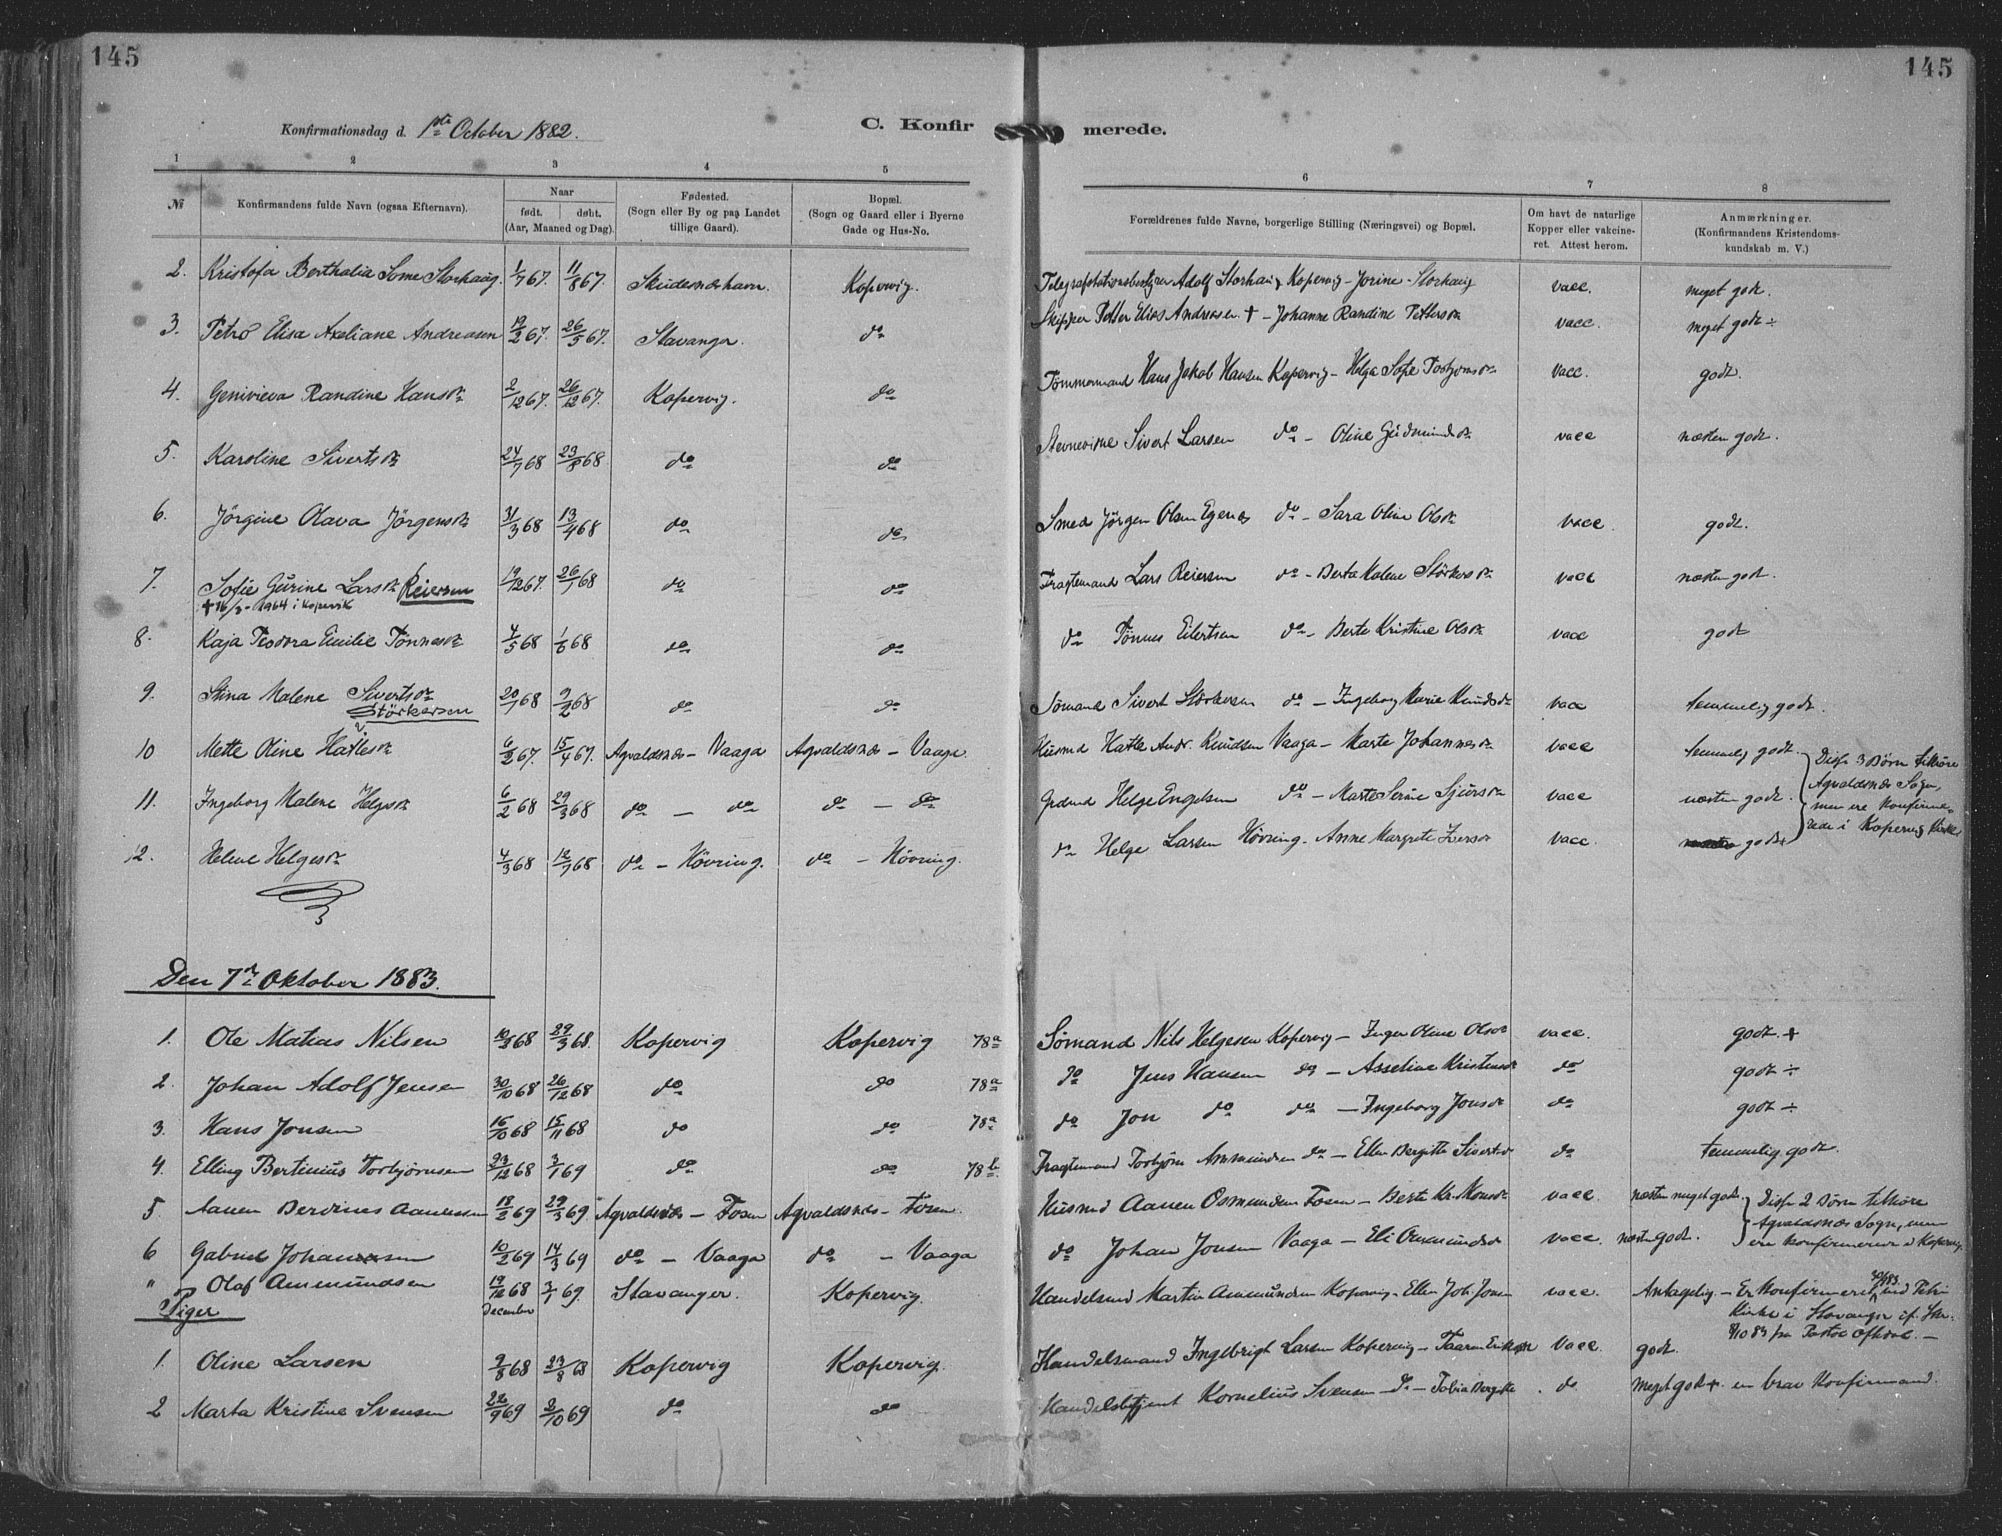 145
145
Konfirmationsdag d. 1ste October 1882.
C. Konfirmerede.
1 2 3 4 5 6 7 8
№ Konfirmandens fulde Navn (ogsaa Efternavn). Naar født. døbt. (Aar, Maaned og Dag). Fødested. (Sogn eller By og paa Landet tillige Gaard). Bopæl. (Sogn og Gaard eller i Byerne Gade og Hus-No. Forældrenes fulde Navne, borgerlige Stilling (Næringsvei) og Bopæl. Om havt de naturlige Kopper eller vakcineret. Attest herom. Anmærkninger. (Konfirmandens Kristendomskundskab m. V.)
2. Kristofa Berthalia Some Storhaug 1/7 67. 11/8 67. Skudesnæshavn. Kopervig. Adolf Storhaug Kopervig - Jorine Storhaug vacc. meget godt.
3. Petro Elisa Axeliane Andreasen 19/2 67. 26/5 67. Stavanger. do Skipper Petter Elias Andreasen † - Johanne Randine Pettersdr vacc. meget godt ÷
4. Genivieva Randine Hansdr 2/12 67. 26/12 67. Kopervig. do Tømmermand Hans Jakob Hansen Kopervig - Helga Sofie Torbjørnsdr vacc. godt.
5. Karoline Sivertsdr 24/7 68 23/8 68 do do Stevnevidne Sivert Larsen do - Oline Gudmundsdr vacc næsten godt.
6. Jörgine Olava Jörgensdr 31/3 68 13/4 68 do do Smed Jörgen Olsen Egenæs do - Sara Oline Olsdr vacc. godt.
7. Sofie Gurine Larsdr Reiersen 19/12 67. 26/1 68 do do Fragtemand Lars Reiersen do - Berta Malene Störkersdr vacc næsten godt.
† 16/3 - 1964 i Kopervik
8. Kaja Teodora Emilie Tönnesdr 4/5 68 1/6 68 do do do Tönnes Eilertsen do - Berte Kristine Olsdr vacc godt
9. Stina Malene Sivertsdr 20/1 68 9/2 68 do do Sömand Sivert Störkersen do - Ingeborg Marie Knudsdr vacc temmelig godt.
Störkersen
10 Mette Oline Hatlesdr 6/2 67. 15/4 67. Agvaldsnæs - Vaaga Agvaldsnæs - Vaaga. Husmd Hatle Andr. Knudsen Vaaga - Marte Johannesdr vacc temmelig godt.
Disse 3 Börn tilhöre
Agvaldsnæs Sogn,
men ere Konfirme-
rede i Kopervig Kirke
11. Ingeborg Malene Helgesdr 6/2 68 29/3 68 do - do do - do Grdmd Helge Engelsen do - Marte Serine Sjursdr vacc næsten godt.
12. Helene Helgesdr 4/3 68 12/7 68 do - Hövring. do - Hövring. do Helge Larsen Hövring - Anne Margrete Iversdr vacc. godt +
Den 7de Oktober 1883.
1. Ole Matias Nilsen 10/3 68 29/3 68. Kopervig Kopervig 78a Sömand Nils Helgesen Kopervig - Inger Oline Olsdr vacc. godt. +
2. Johan Adolf Jensen 30/10 68 26/12 68 do do 78a do Jens Hansen do - Asseline Kristensdr do godt ÷
3. Hans Jonsen 16/10 68 15/11 68 do do 78a do Jon do do - Ingeborg Jonsdr do godt ÷
4. Elling Bertinius Torbjörnsen 23/12 68 3/1 69 do do 78b Fragtemand Torbjörn Ammundsen do - Ellen Bergitte Sivertsdr do temmelig godt.
5 Aanen Berdines Aanensen 18/2 69 29/3 69 Agvaldsnæs - Fosen Agvaldsnæs - Fosen. Husmd Aanen Osmundsen Fosen - Berte Kr. Monsdr vacc. næsten meget godt.
Disse 2 Börn tilhöre
Agvaldsnæs Sogn, men
ere Konfirmerede i Kopervig
6 Gabriel Johannesen 10/2 69 14/3 69 do - Vaaga do - Vaaga do Johan Jonsen Vaaga - Eli Ammundsdr vacc. næsten godt.
" Olaf Ammundsen 19/12 68 3/1 69. Stavanger. Kopervig. Handelsmd Martin Ammundsen Kopervig - Ellen Joh. Jonsen vacc. Antagelig - Er Konfirmeret ved Petri
December
Kirke i Stavanger if. Skr.
8/10 83 fra Pastor Oftedal. -
Piger
1. Oline Larsen 9/8 68 23/8 68 Kopervig Kopervig. Handelsmand Ingebrigt Larsen Kopervig - Taaren Eriksen Vacc. godt.
2 Marta Kristine Svensen 22/9 69 3/10 69 do do Handelsbetjent Kornelius Svensen - do - Tobia Bergitte do Meget godt +. en brav Konfirmand.